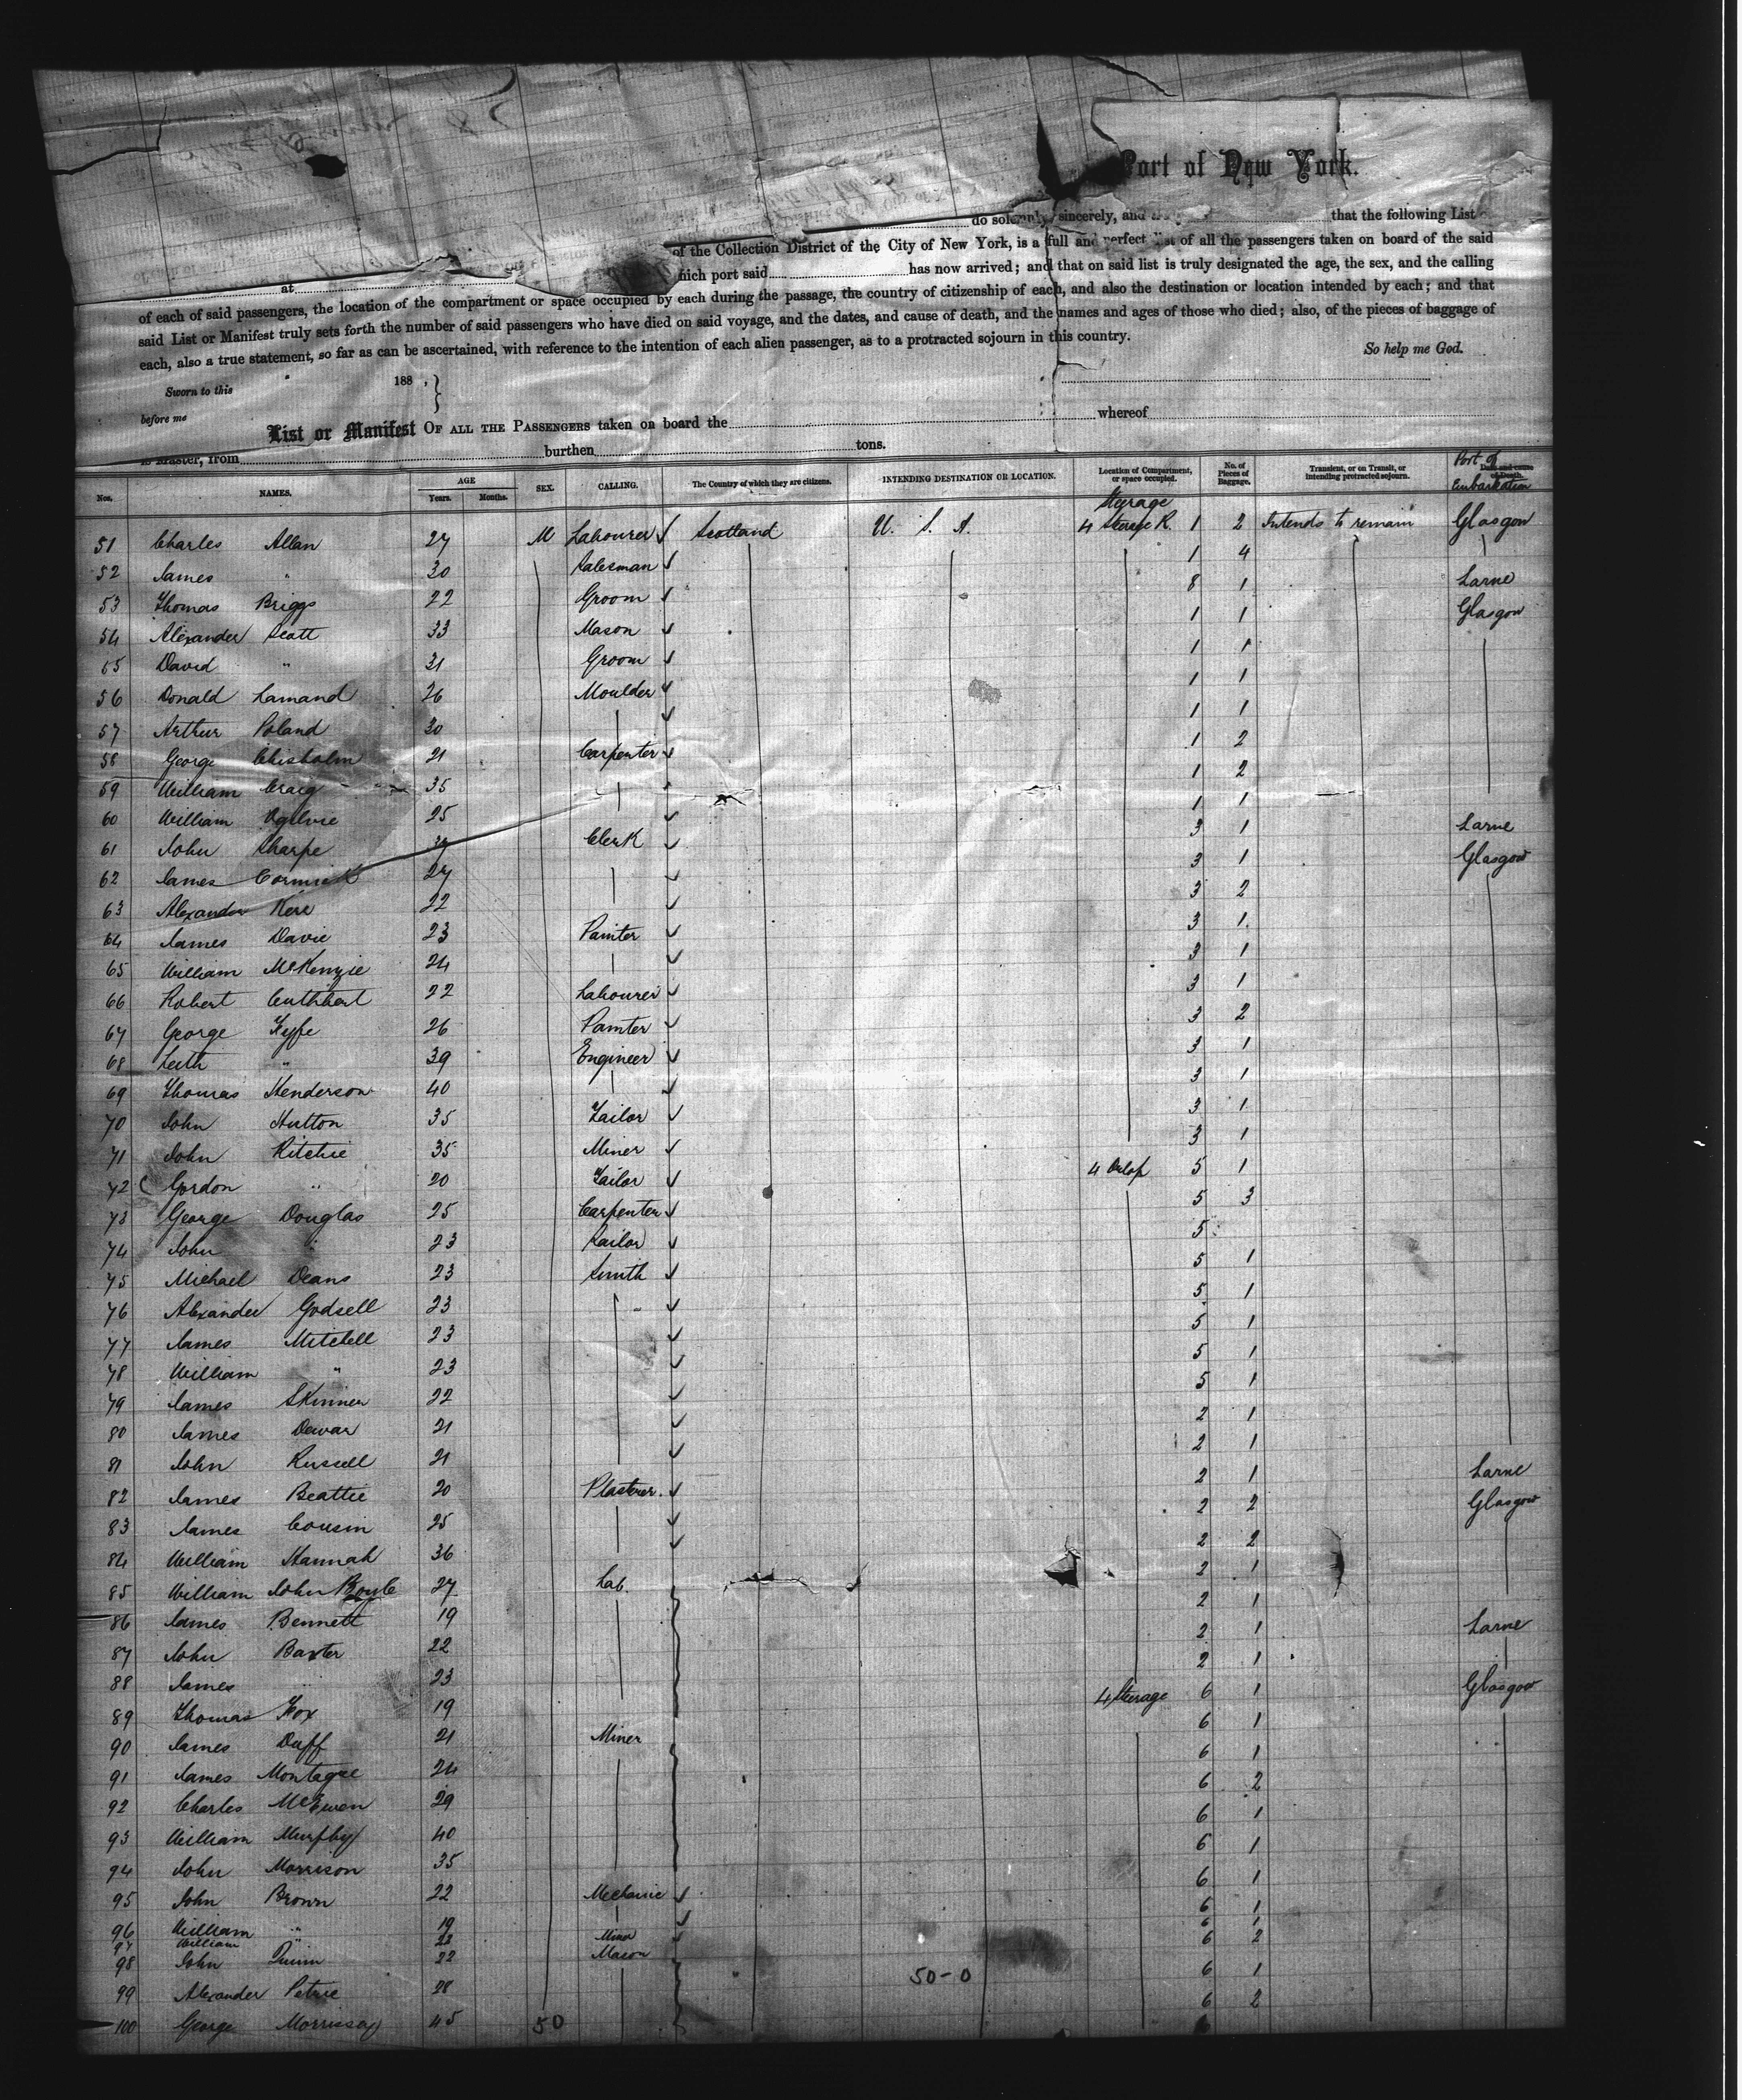 Port of New York.
do solemnly, sincerely, and that the following List
of the Collection District of the City of New York, is a full and perfect list of all the passengers taken on board of the said
at which port said has now arrived; and that on said list is truly designated the age, the sex, and the calling
of each of said passengers, the location of the compartment or space occupied by each during the passage, the country of citizenship of each, and also the destination or location intended by each; and that
said List or Manifest truly sets forth the number of said passengers who have died on said voyage, and the dates, and cause of death, and the names and ages of those who died; also, of the pieces of baggage of
each, also a true statement, so far as can be ascertained, with reference to the intention of each alien passenger, as to a protracted sojourn in this country.
So help me God.
Sworn to this 188 ,
before me
List or Manifest OF ALL THE PASSENGERS taken on board the whereof
is Master, from burthen tons.
Nos. NAMES. AGE Years. Months. SEX. CALLING. The Country of which they are citizens. INTENDING DESTINATION OR LOCATION. Location of Compartment, or space occupied. No. of Pieces of Baggage. Transient, or on Transit, or intending protracted sojourn. Port of Embarkation
Steerage
51 Charles Allan 27 M Labourer Scotland U. S. A. 4 Steerage R. 1 2 Intends to remain Glasgow
52 James " 30 Salesman 1 4
53 Thomas Briggs 22 Groom 8 1 Larne
54 Alexander Scott 33 Mason 1 1 Glasgow
55 David " 31 Groom 1 1
56 Donald Lamand 26 Moulder 1 1
57 Arthur Poland 30 1 1
58 George Chisholm 21 Carpenter 1 2
59 William Craig 35 1 2
60 William Ogilvie 25 1 1
61 John Sharpe Clerk 3 1 Larne
62 James Cormick 27 3 1 Glasgow
63 Alexander Kerr 22 3 2
64 James Davie 23 Painter 3 1
65 William McKenzie 24 3 1
66 Robert Cuthbert 22 Labourer 3 1
67 George Fyfe 26 Painter 3 2
68 Leith " 39 Engineer 3 1
69 Thomas Henderson 40 3 1
70 John Hutton 35 Tailor 3 1
71 John Ritchie 35 Miner 3 1
72 Gordon " 20 Tailor 4 Orlop 5 1
73 George Douglas 25 Carpenter 5 3
74 John " 23 Sailor 5
75 Michael Deans 23 Smith 5 1
76 Alexander Godsell 23 5 1
77 James Mitchell 23 5 1
78 William " 23 5 1
79 James Skinner 22 5 1
80 James Dewar 21 2 1
81 John Russell 21 2 1
82 James Beattie 20 Plasterer. 2 1 Larne
83 James Cousin 25 2 2 Glasgow
84 William Hannah 36 2 2
85 William John Boyle 27 Lab. 2 1
86 James Bennett 19 2 1
87 John Baxter 22 2 1 Larne
88 James " 23 2 1
89 Thomas Fox 19 4 Steerage 6 1 Glasgow
90 James Duff 21 Miner 6 1
91 James Montague 24 6 1
92 Charles McEwen 29 6 2
93 William Murphy 40 6 1
94 John Morrison 35 6 1
95 John Brown 22 Mechanic 6 1
96 William " 19 6 1
97 William " 23 Miner 6 1
98 John Quinn 22 Mason 6 2
99 Alexander Petrie 28 50-0 6 1
100 George Morrissay 45 50 6 2